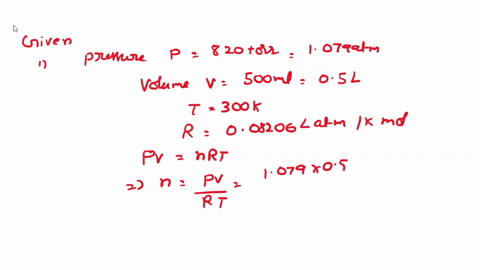 Given
1) pressure P = 820 torr = 1.079atm
Volume V = 500ml = 0.5L
T = 300K
R = 0.08206 L atm /K mol
PV = nRT
=) n = PV/RT = 1.079 x 0.5